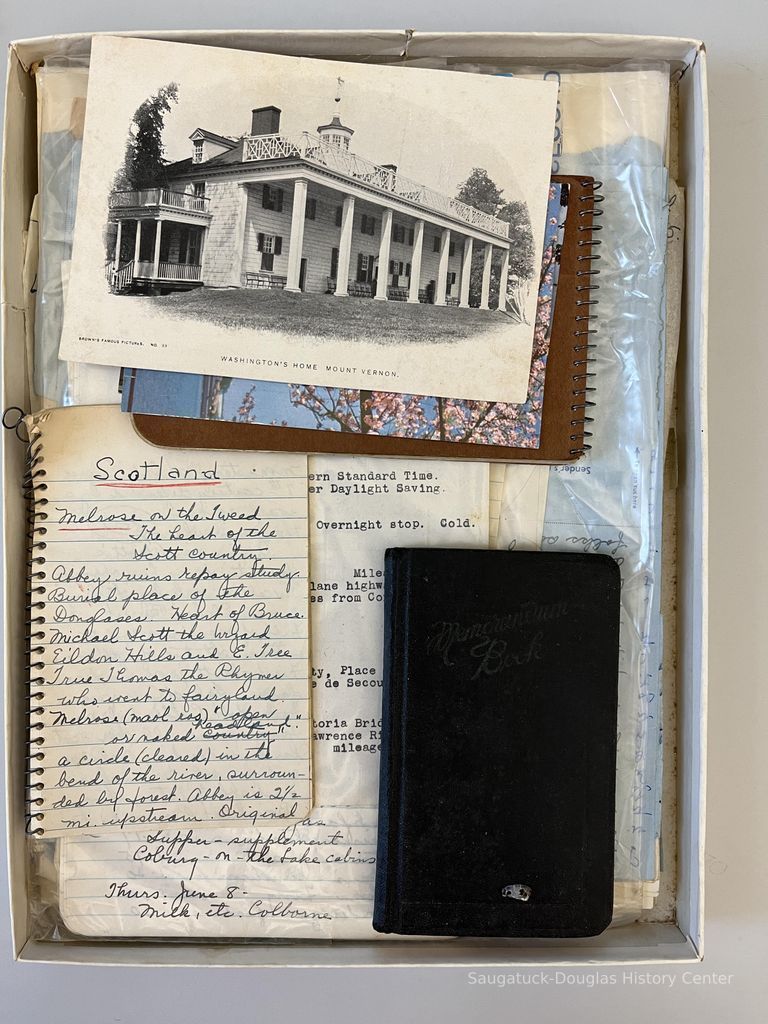 BROWN'S FAMOUS PICTURES. NO.
WASHINGTON'S HOME MOUNT VERNON.
Sender's
Scotland
Melrose on the Tweed
The heart of the
Scott country
Abbey ruins repay study.
Burial place of the
Douglases. Heart of Bruce.
Michael Scott the wizard
Eildon Hills and E. Tree
True Thomas the Rhymer
who went to fairyland.
Melrose (maol ros) "open
Headland."
or naked country"
a circle (cleared) in the
bend of the river, surroun-
ded by forest. Abbey is 2½
mi. upstream. Original
ern Standard Time.
er Daylight Saving.
Overnight stop. Cold.
Mile
lane highw
es from Co
ty, Place
e de Secou
toria Brid
awrence Ri
mileage
Memorandum
Book
as
Supper - supplement
Coburg - on - the Lake cabins
Thurs. June 8 -
Milk, etc. Colborne
Saugatuck-Douglas History Center